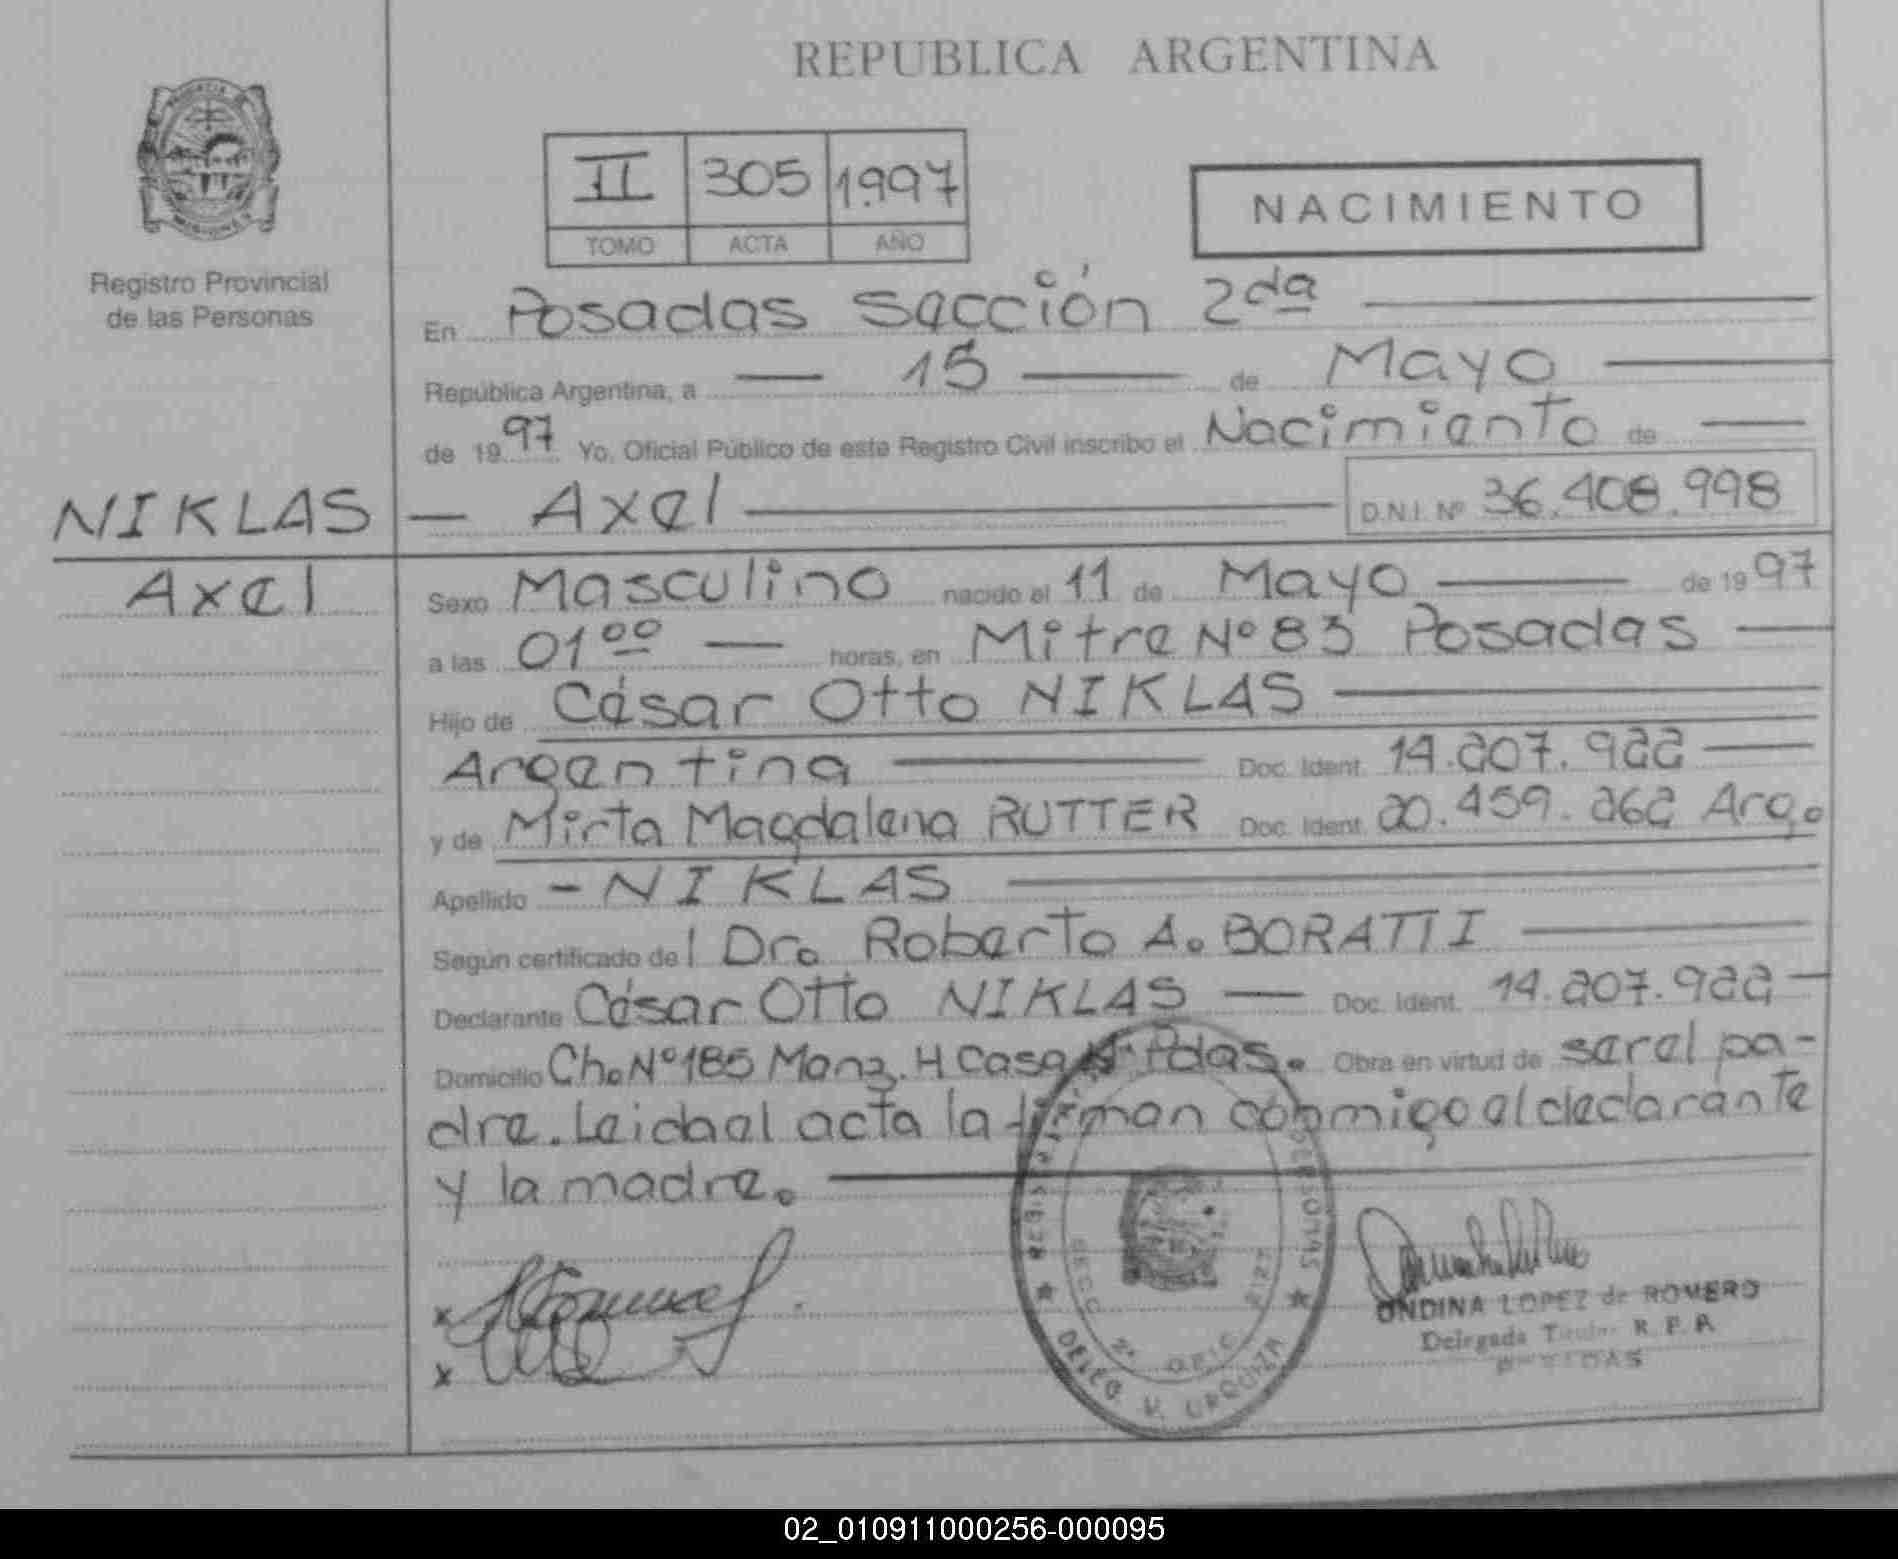 REPUBLICA ARGENTINA
II 305 1.997
TOMO ACTA AÑO
NACIMIENTO
Registro Provincial
de las Personas
En Posadas Sección 2da
República Argentina, a 15 de Mayo
de 1997 Yo, Oficial Público de este Registro Civil inscribo el Nacimiento de
NIKLAS Axel D.N.I. Nº 36.408.998
Axel
Sexo Masculino nacido el 11 de Mayo de 1997
a las 01⁰⁰ horas, en Mitre Nº 83 Posadas
Hijo de César Otto NIKLAS
Argentina Doc. Ident. 14.207.922
y de Mirta Magdalena RUTTER Doc. Ident. 20.459.262 Arg.
Apellido - NIKLAS
Según certificado del Dr. Roberto A. BORATTI
Declarante César Otto NIKLAS Doc. Ident. 14.207.922
Domicilio Ch. Nº 185 Manz. H Casa Pdas. Obra en virtud de ser el pa-
dre. Leida el acta la firman conmigo el declarante
y la madre.
x
x
ONDINA LOPEZ de ROMERO
Delegada Titular R. P. P.
DELEG. V. URQUIZA
02_010911000256-000095